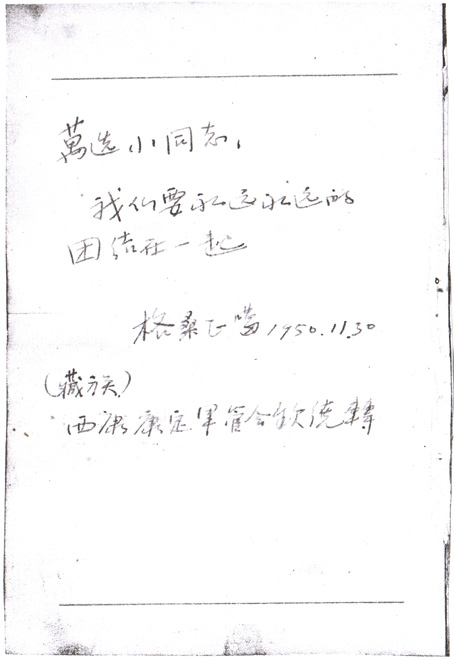 萬选小同志,
我们要永远永远的
团结在一起
格桑 1950.11.30
(藏族)
西康康定軍管会 轉